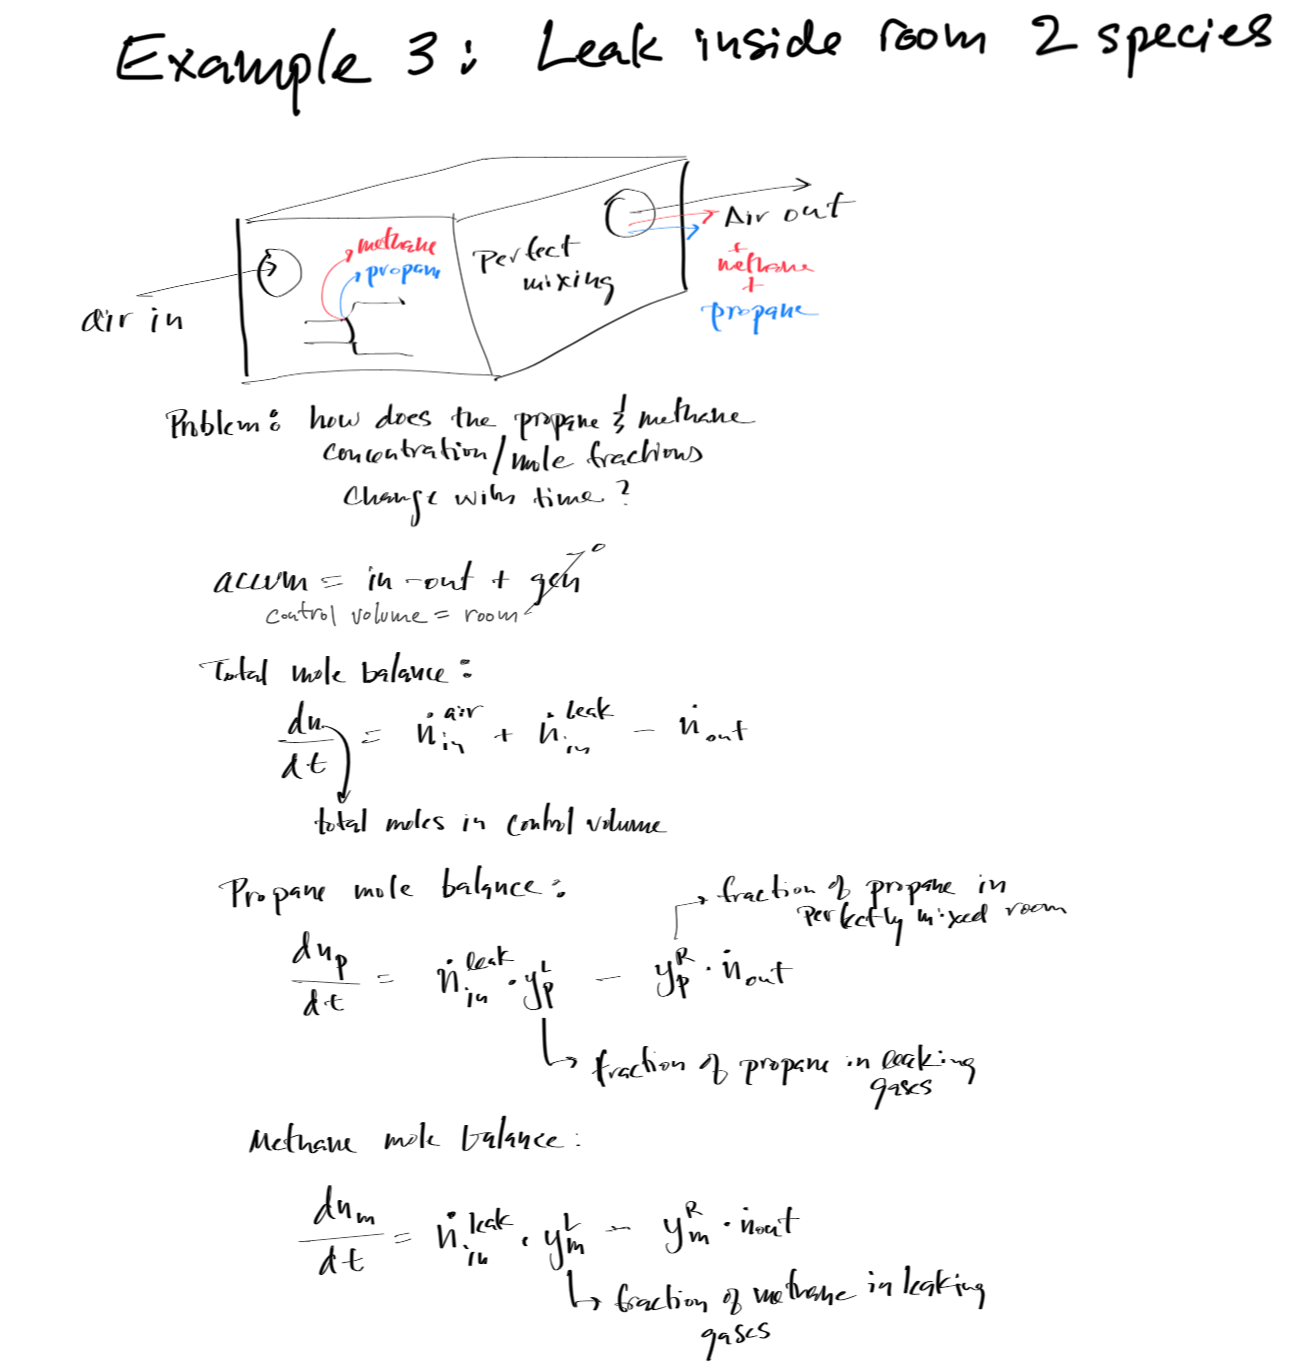 Example 3: Leak inside room 2 species
methane
propane
Perfect
mixing
Air out
+
methane
+
propane
air in
Problem: how does the propane & methane
concentration/mole fractions
change with time?
accum = in - out + gen → 0
control volume = room
Total mole balance:
dn/dt = ṅ_in^air + ṅ_in^leak - ṅ_out
total moles in control volume
Propane mole balance:
fraction of propane in
perfectly mixed room
dn_p/dt = ṅ_in^leak · y_p^L - y_p^R · ṅ_out
fraction of propane in leaking
gases
Methane mole balance:
dn_m/dt = ṅ_in^leak · y_m^L - y_m^R · ṅ_out
fraction of methane in leaking
gases